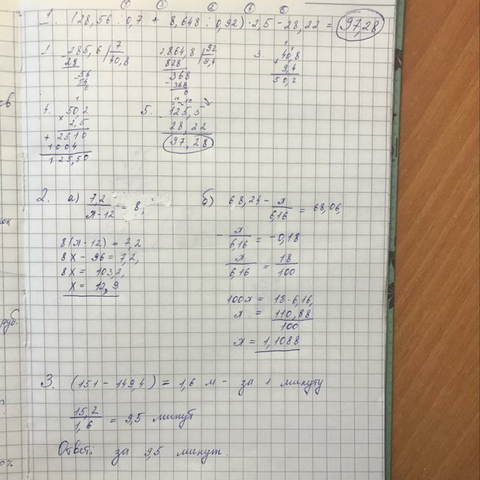 1. (28,56 : 0,7 + 8,648 : 0,92) · 2,5 - 28,22 = 97,28
1. 285,6 | 7
28 40,8
56
56
0
2. 864,8 | 92
828 9,4
368
- 368
0
3. 40,8
+ 9,4
50,2
4. 502
× 2,5
+ 2510
1004
125,50
5. 125,5
- 28,22
97,28
2. а) 7,2 / x - 12 = 8,
8(x - 12) = 7,2
8x - 96 = 7,2,
8x = 103,2,
x = 12,9
б) 68,24 - x / 6,16 = 68,06,
- x / 6,16 = -0,18
x / 6,16 = 18 / 100
100x = 18 · 6,16,
x = 110,88 / 100
x = 1,1088
3. (151 - 149,4) = 1,6 м - за 1 минуту
15,2 / 1,6 = 9,5 минут
Ответ: за 9,5 минут.
руб.